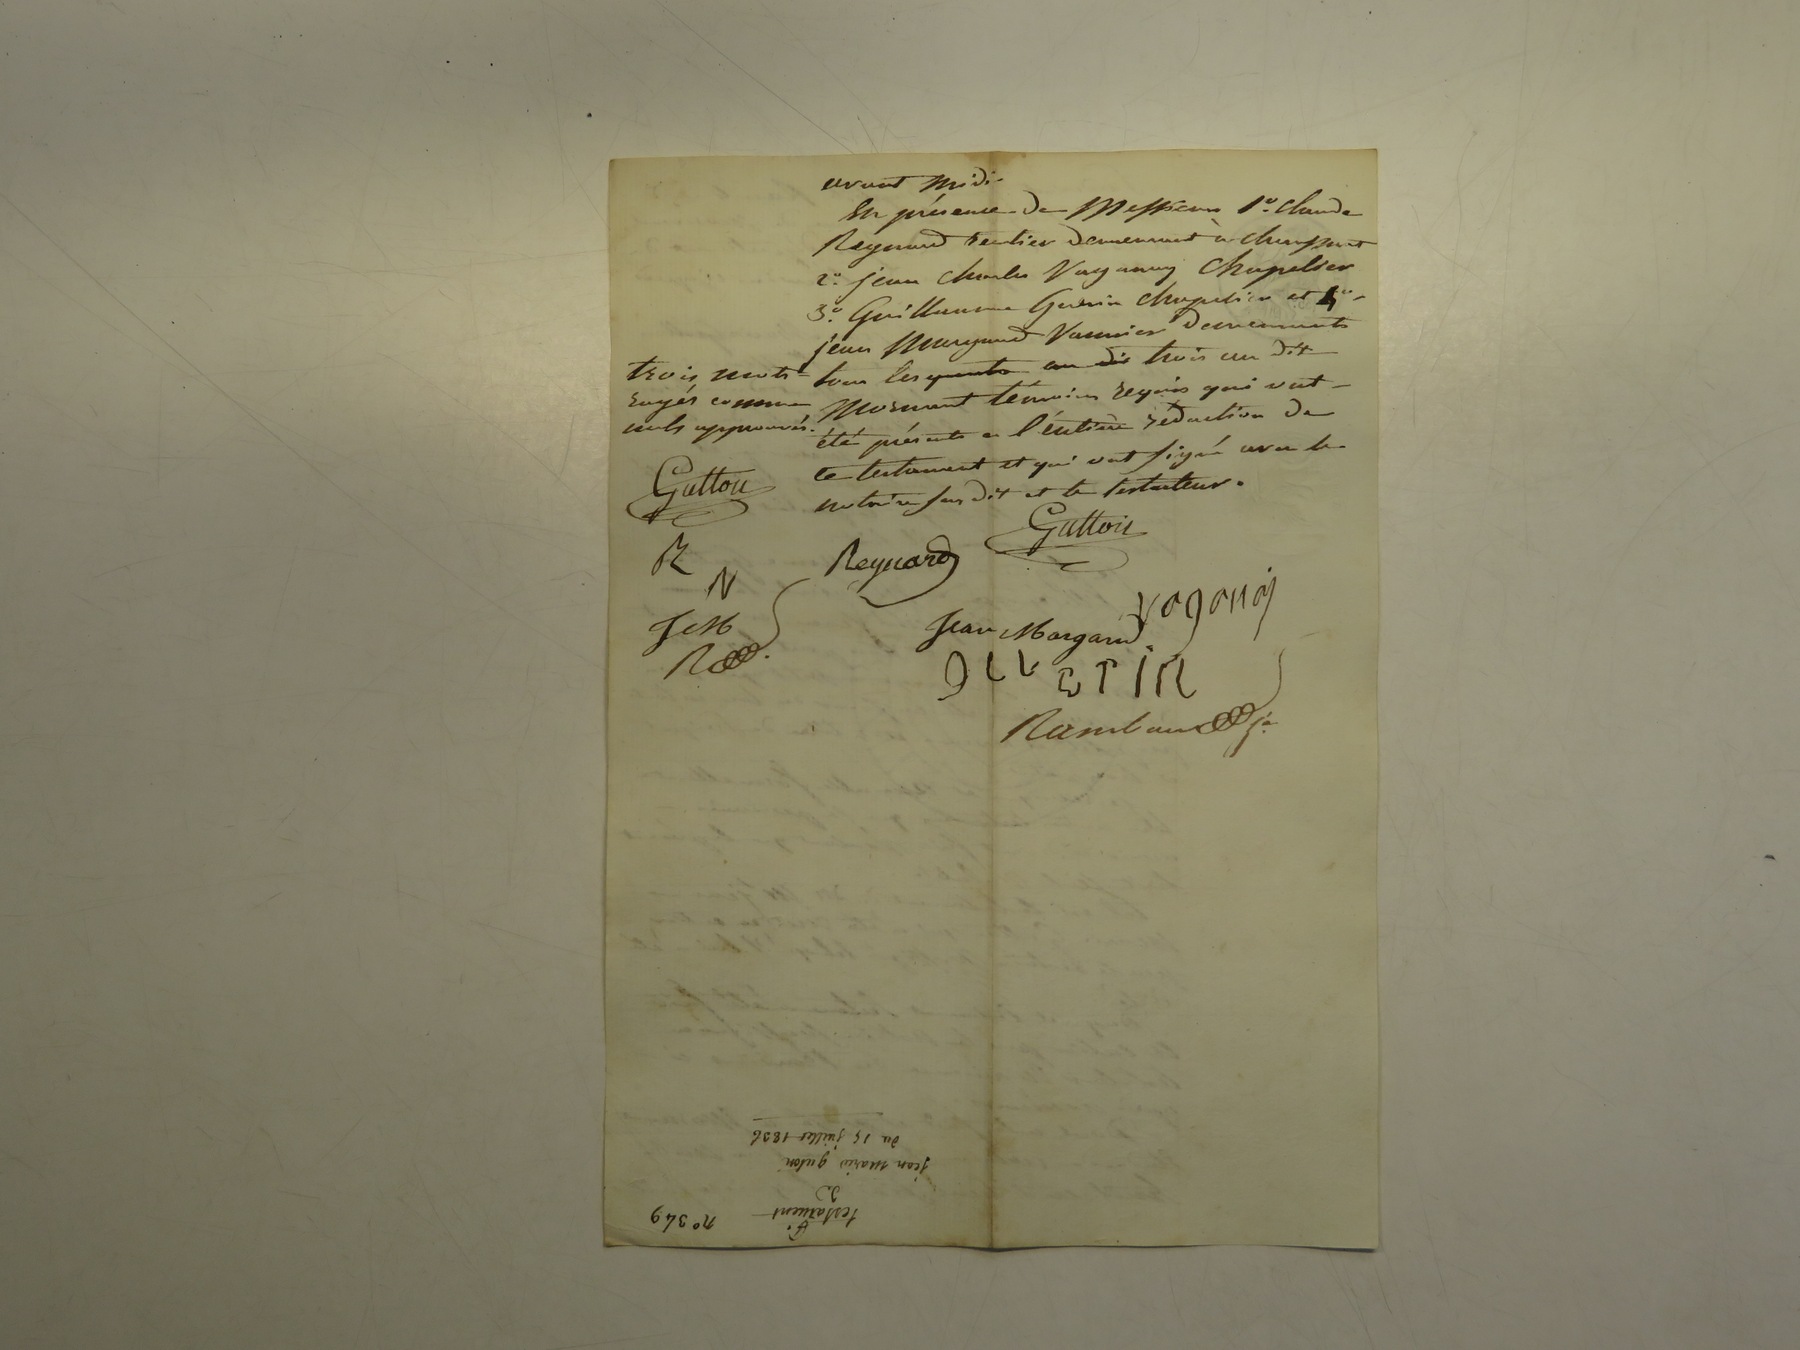 avant midi.
En présence de Messieurs 1.° Claude
Reynard rentier demeurant à
2.° jean Charles Vaganay Chapelier
3.° Guillaume Guerin Chapelier et 4.°
jean Margand Vannier demeurants
tous les quatre au dit trois au dit
Mornant témoins requis qui ont
été présents a l'entière rédaction de
ce testament et qui ont signé avec le
notaire susdit et le testateur.
trois mots
rayés comme
nuls approuvés.
Gutton
Gutton
R
Reynard
N
Vaganay
J M
Jean Margand
Rambaud
n° 349
testament
de
jean marie guton
du 15 juillet 1836